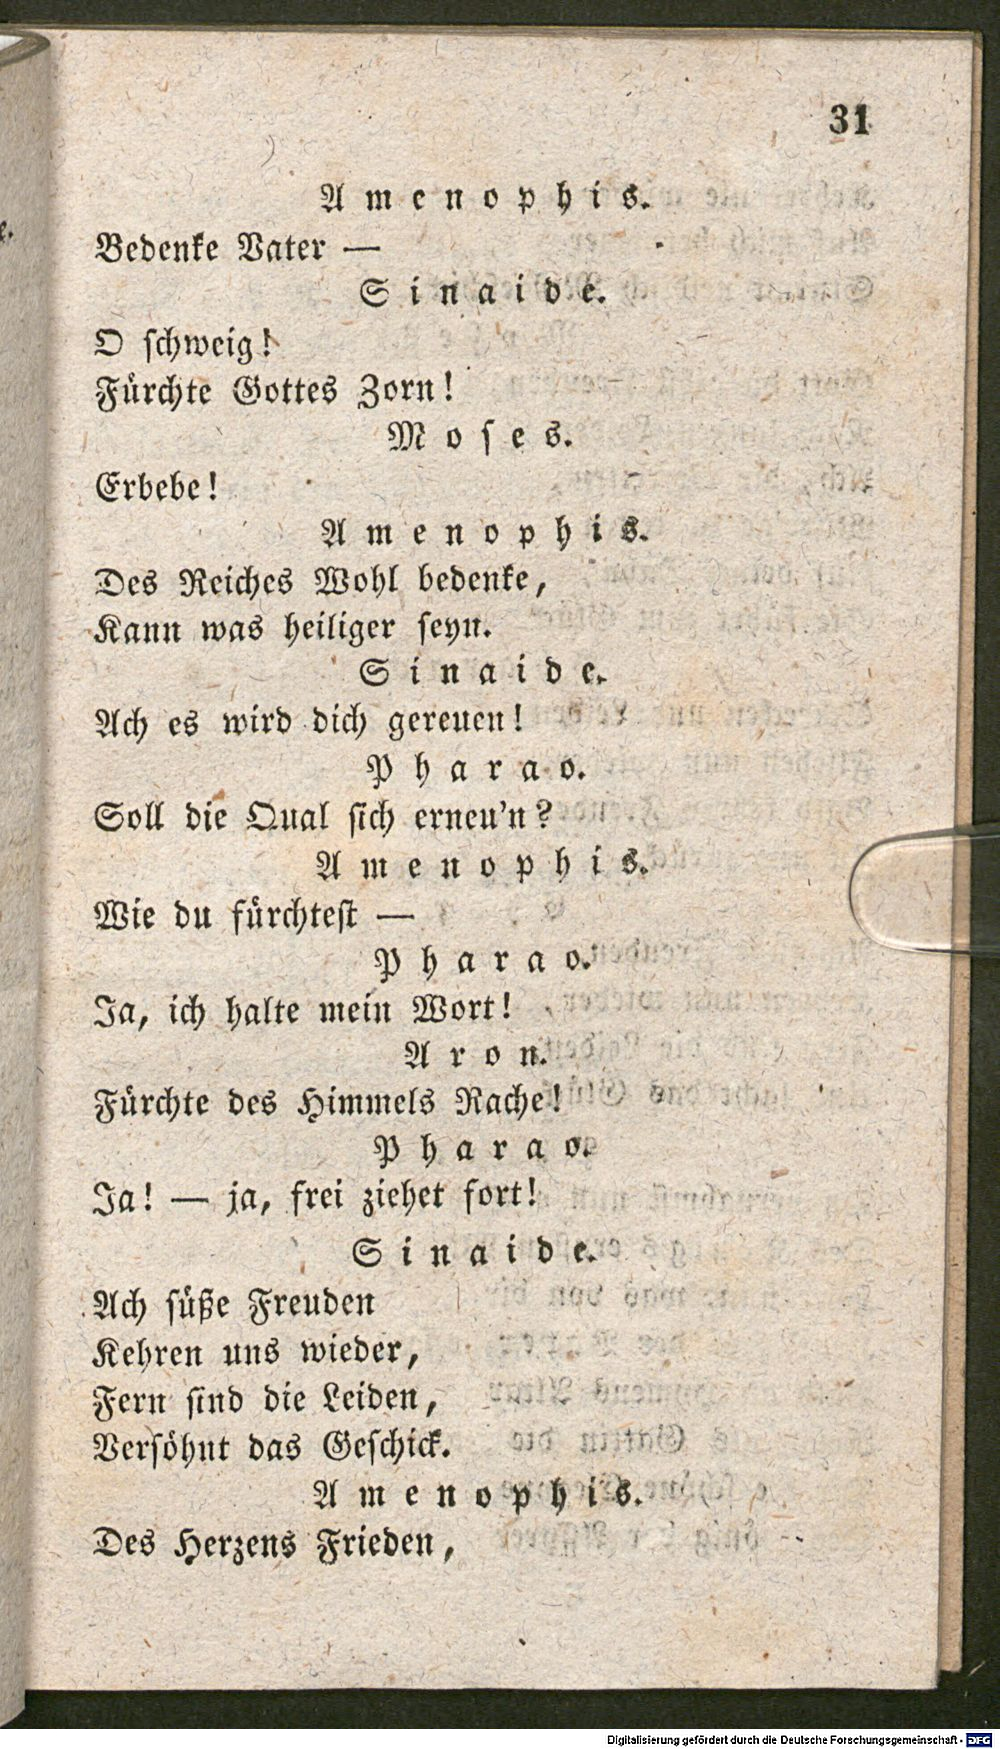 31
Amenophis.
Bedenke Vater —
Sinaide.
O schweig!
Fürchte Gottes Zorn!
Moses.
Erbebe!
Amenophis.
Des Reiches Wohl bedenke,
Kann was heiliger seyn.
Sinaide.
Ach es wird dich gereuen!
Pharao.
Soll die Qual sich erneu'n?
Amenophis.
Wie du fürchtest —
Pharao.
Ja, ich halte mein Wort!
Aron.
Fürchte des Himmels Rache!
Pharao.
Ja! — ja, frei ziehet fort!
Sinaide.
Ach süße Freuden
Kehren uns wieder,
Fern sind die Leiden,
Versöhnt das Geschick.
Amenophis.
Des Herzens Frieden,
Digitalisierung gefördert durch die Deutsche Forschungsgemeinschaft - DFG